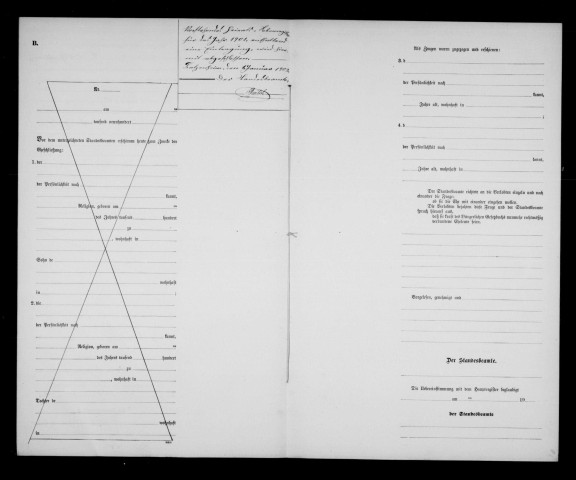 B.
Nr.
am
tausend neunhundert
Vor dem unterzeichneten Standesbeamten erschienen heute zum Zweck der
Eheschließung:
1. der
der Persönlichkeit nach
kannt,
Religion, geboren am
des Jahres tausend hundert
zu
, wohnhaft in
Sohn de
wohnhaft
in
2. die
der Persönlichkeit nach
kannt,
Religion, geboren am
des Jahres tausend hundert
zu
, wohnhaft in
Tochter de
wohnhaft
in
für das Jahr 1901.
eine Eintragung, wird
mit abgeschlossen.
Der Standesbeamte
Als Zeugen waren zugezogen und erschienen:
3. d
der Persönlichkeit nach
kannt,
Jahre alt, wohnhaft in
4. d
der Persönlichkeit nach
kannt,
Jahre alt, wohnhaft in
Der Standesbeamte richtete an die Verlobten einzeln und nach
einander die Frage:
ob sie die Ehe mit einander eingehen wollen.
Die Verlobten bejahten diese Frage und der Standesbeamte
sprach hierauf aus,
daß sie kraft des Bürgerlichen Gesetzbuchs nunmehr rechtmäßig
verbundene Eheleute seien.
Vorgelesen, genehmigt und
Der Standesbeamte.
Die Uebereinstimmung mit dem Hauptregister beglaubigt
am 19
der Standesbeamte